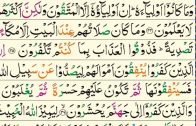 كَانُوٓا۟ أَوْلِيَآءَهُۥٓ إِنْ أَوْلِيَآؤُهُۥٓ إِلَّا ٱلْمُتَّقُونَ وَلَٰكِنَّ أَكْثَرَهُمْ
لَا يَعْلَمُونَ ۝ وَمَا كَانَ صَلَاتُهُمْ عِندَ ٱلْبَيْتِ إِلَّا مُكَآءً
وَتَصْدِيَةً فَذُوقُوا۟ ٱلْعَذَابَ بِمَا كُنتُمْ تَكْفُرُونَ ۝ إِنَّ
ٱلَّذِينَ كَفَرُوا۟ يُنفِقُونَ أَمْوَٰلَهُمْ لِيَصُدُّوا۟ عَن سَبِيلِ ٱللَّهِ
فَسَيُنفِقُونَهَا ثُمَّ تَكُونُ عَلَيْهِمْ حَسْرَةً ثُمَّ يُغْلَبُونَ
وَٱلَّذِينَ كَفَرُوٓا۟ إِلَىٰ جَهَنَّمَ يُحْشَرُونَ ۝ لِيَمِيزَ ٱللَّهُ ٱلْخَبِيثَ